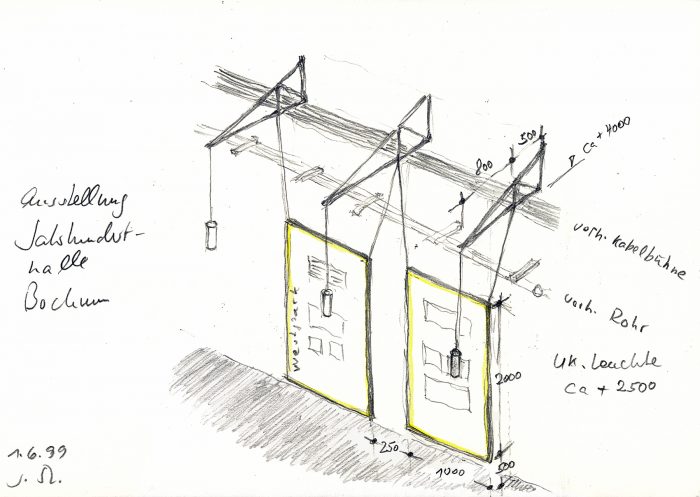 Ausstellung
Jahrhundert-
halle
Bochum
1.6.99
500
800
ca + 4000
vorh. Kabelbühne
vorh. Rohr
UK. Leuchte
ca + 2500
Westpark
2000
250
1000
500